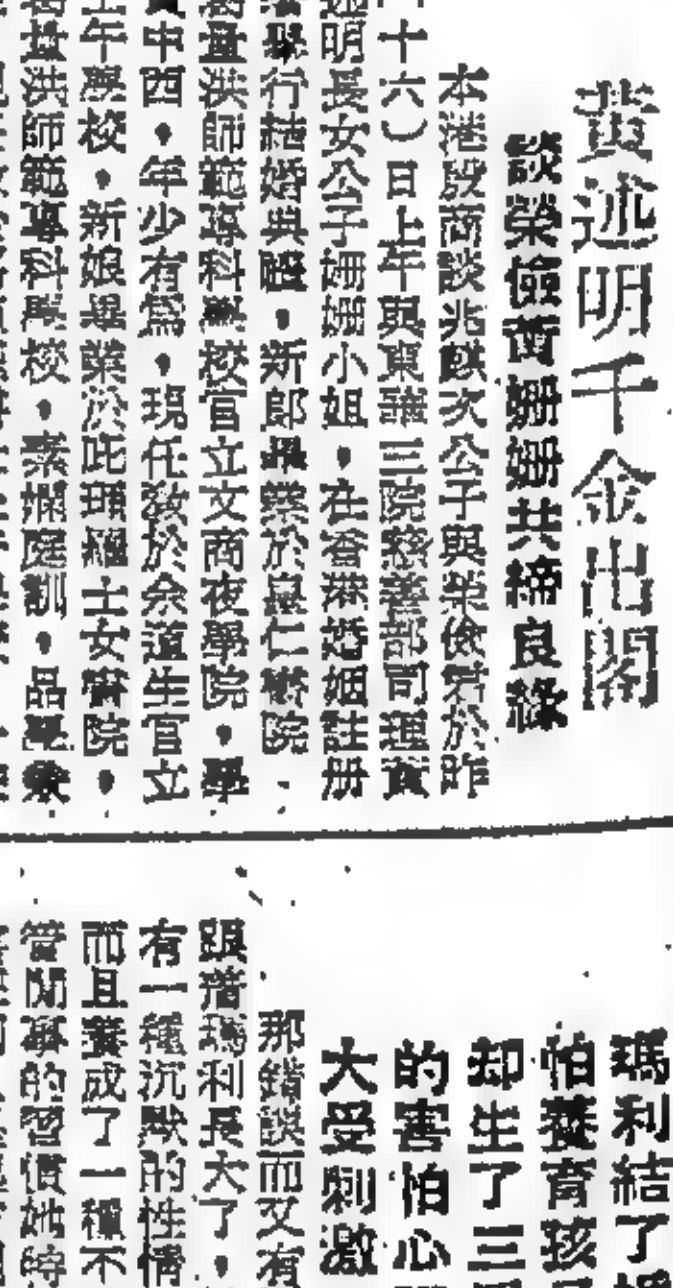 黃述明千金出閣
談榮儉黃姍姍共締良緣
本港殷商談兆麒次公子與榮儉君於昨
十六）日上午與東華三院慈善部司理黃
述明長女公子姍姍小姐，在香港婚姻註册
舉行結婚典禮，新郎畢業於崇仁書院
葛量洪師範專科學校官立文商夜學院，學
中西，年少有爲，現任敎於余道生官立
上午學校，新娘畢業於庇理羅士女書院
葛量洪師範專科學校，素嫻庭訓，品學兼
瑪利結了
怕養育孩
却生了三
的害怕心
大受刺激
那錯誤而又有
跟着瑪利長大了，
有一種沉默的性情
而且養成了一種不
管閒事的習慣她時